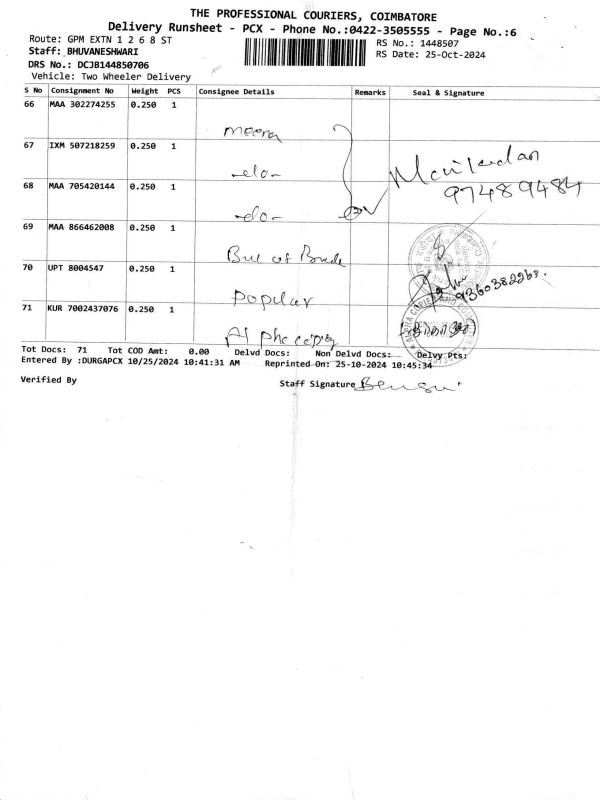 THE PROFESSIONAL COURIERS, COIMBATORE
Delivery Runsheet - PCX - Phone No.:0422-3505555 - Page No.:6
Route: GPM EXTN 1 2 6 8 ST
RS No.: 1448507
Staff: BHUVANESHWARI
RS Date: 25-Oct-2024
DRS No.: DCJB144850706
Vehicle: Two Wheeler Delivery
S No Consignment No Weight PCS Consignee Details Remarks Seal & Signature
66 MAA 302274255 0.250 1
Meera
67 IXM 507218259 0.250 1
-do-
Manikandan
97489484
68 MAA 705420144 0.250 1
-do-
69 MAA 866462008 0.250 1
70 UPT 8004547 0.250 1
9360382263.
Popular
71 KUR 7002437076 0.250 1
Alpha copier
Tot Docs: 71 Tot COD Amt: 0.00 Delvd Docs: Non Delvd Docs: Delvy Pts:
Entered By :DURGAPCX 10/25/2024 10:41:31 AM Reprinted On: 25-10-2024 10:45:34
Verified By
Staff Signature